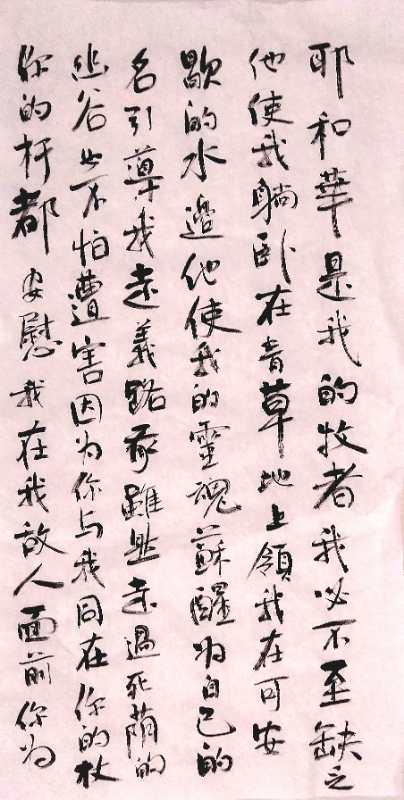 耶和華是我的牧者我必不至缺乏
他使我躺卧在青草地上領我在可安
歇的水邊他使我的靈魂蘇醒为自己的
名引導我走義路我雖然走過死蔭的
幽谷也不怕遭害因为你与我同在你的杖
你的杆都安慰我在我敌人面前你为